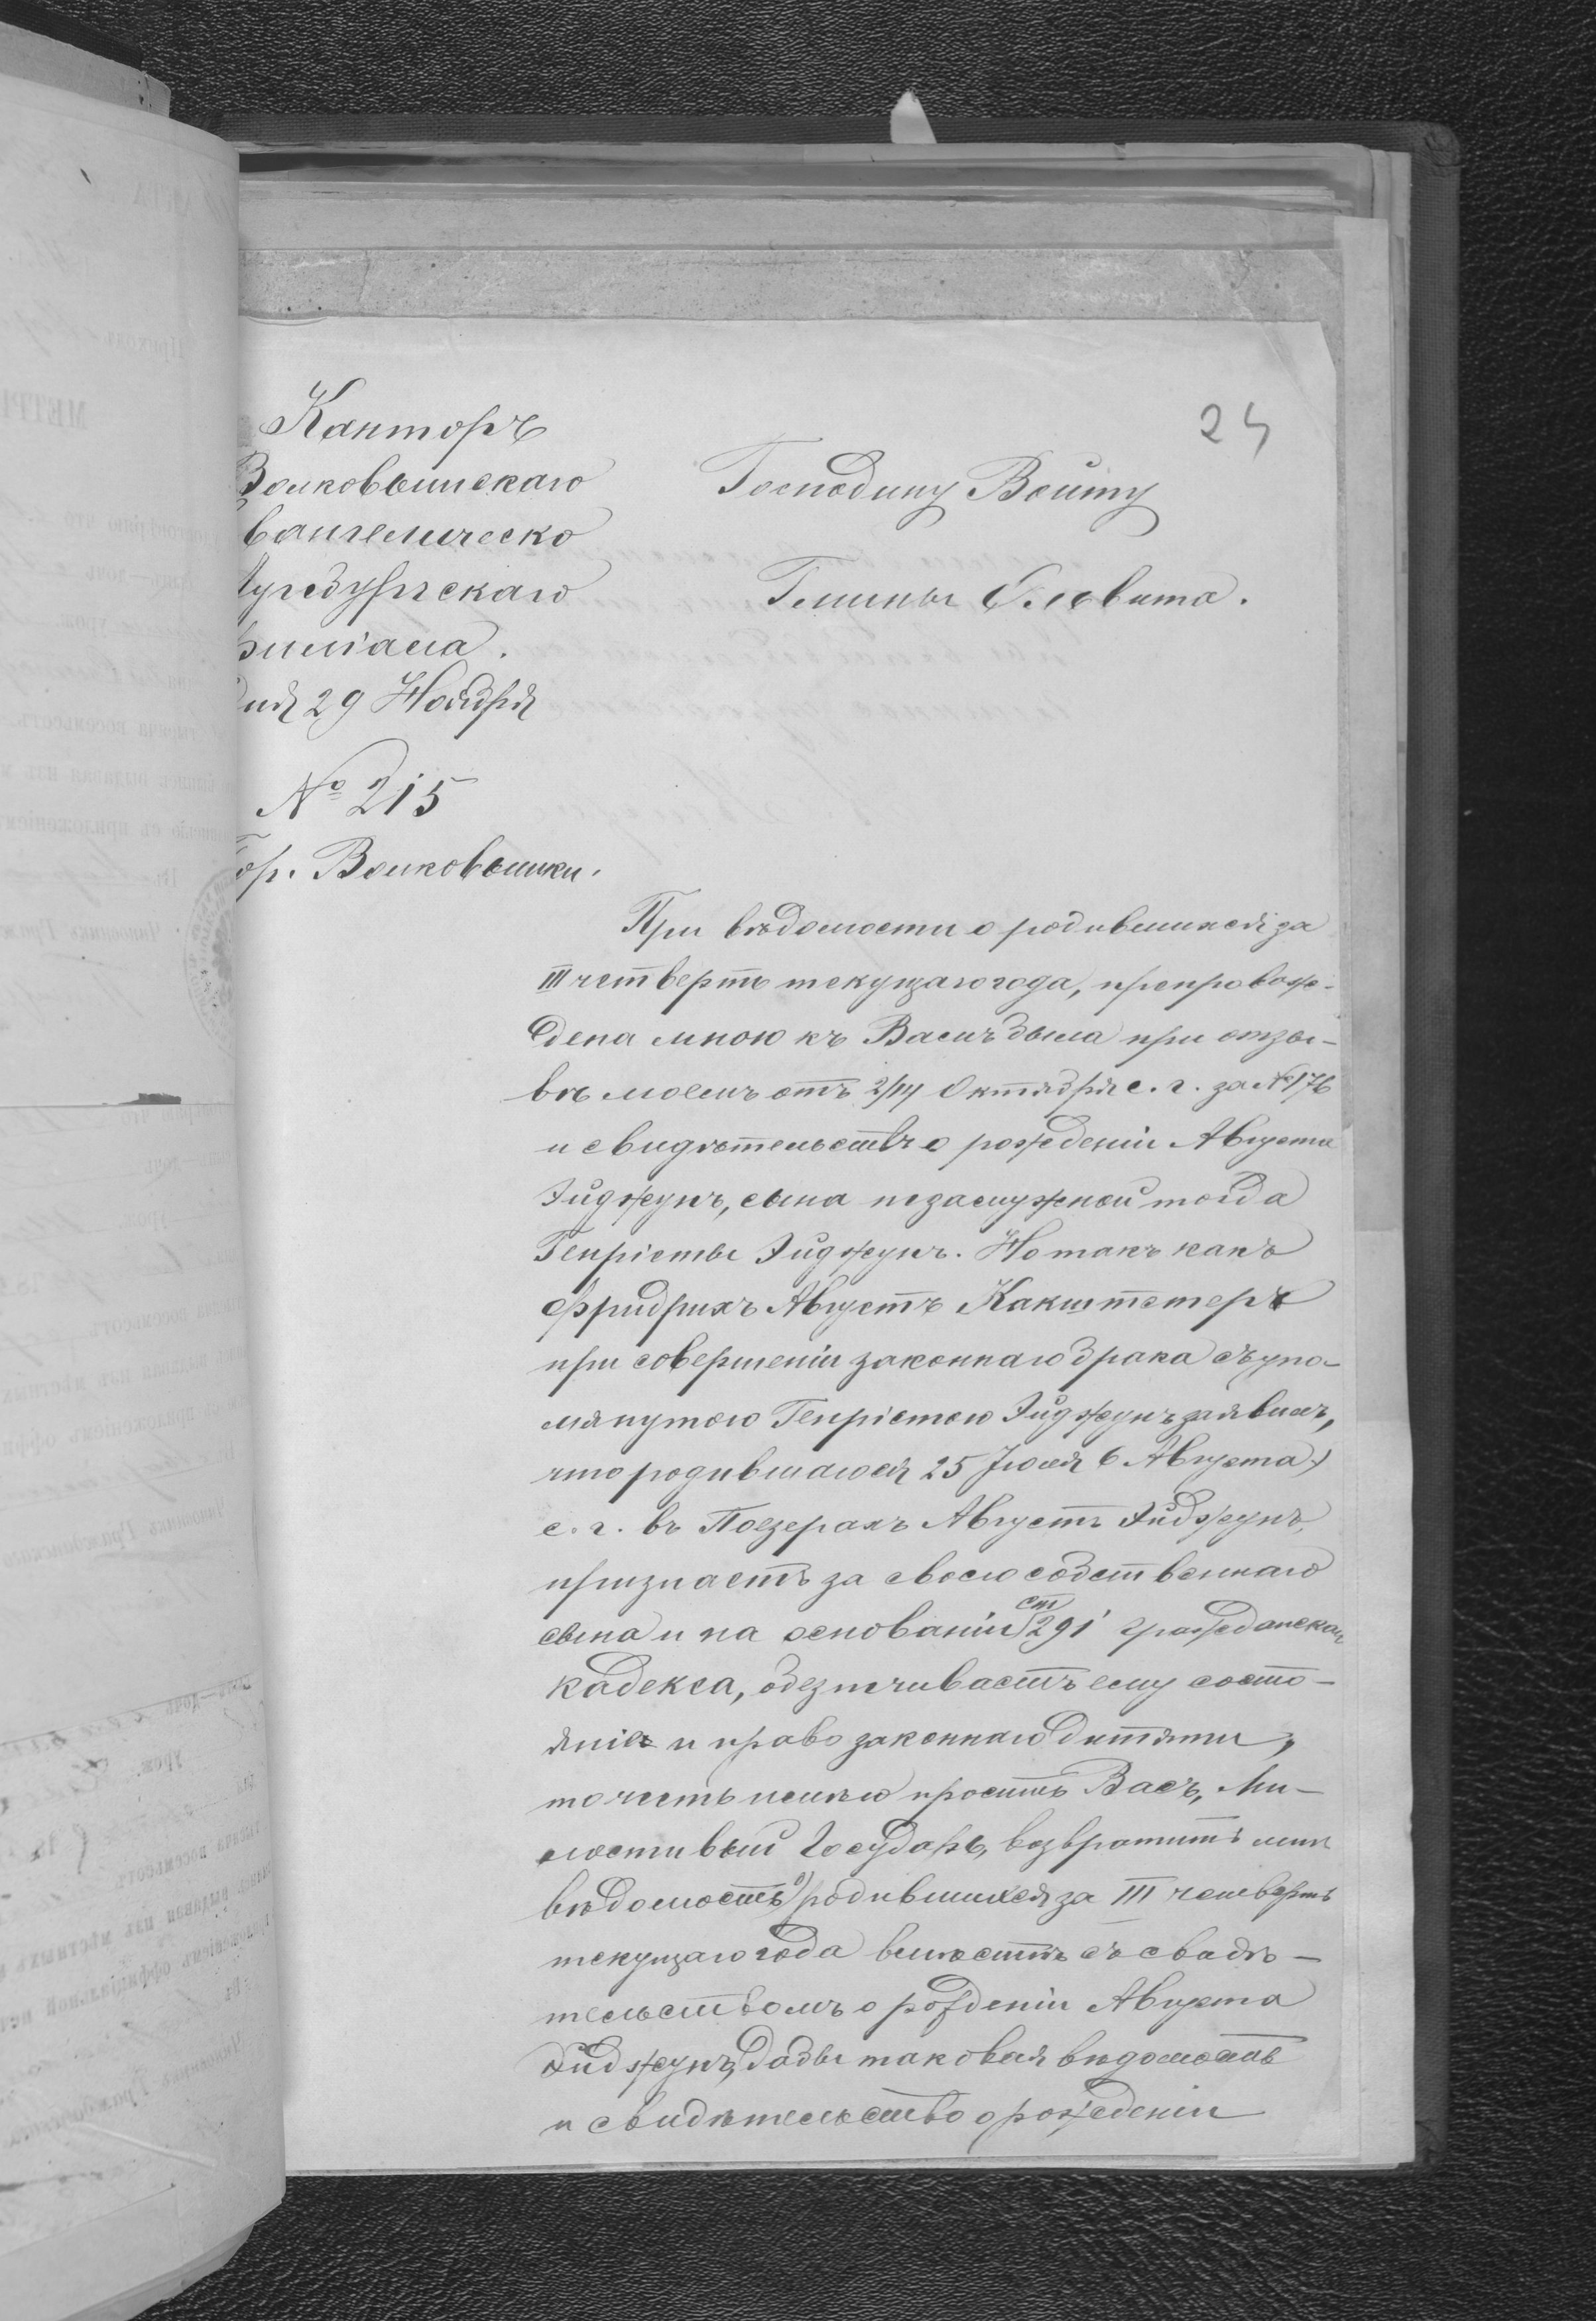 24
Канторъ
Волковышскаго
вангелическо
угсбургскаго
филіала.
дня 29 Ноября
№ 215
Гор. Волковышки.
Господину Войту
Гмины Ольвита.
При вѣдомости о родившихся за
III четверть текущаго года, препровож-
дена мною къ Вамъ была при отзы-
вѣ моемъ отъ 2/14 Октября с. г. за №176
и свидѣтельство о рожденіи Августа
Эйджунъ, сына незамужной тогда
Генріеты Эйджунъ. Но такъ какъ
Фридрихъ Августъ Какштетеръ
при совершеніи законнаго брака съ упо-
мянутою Генріетою Эйджунъ заявилъ,
что родившагося 25 Іюля 6 Августа)
с. г. въ Поезерахъ Августъ Эйджунъ,
признаетъ за своего собственнаго
сына и на основаніи ст 291 гражданскаго
кадекса, обезпечиваетъ ему состо-
яніе и право законнаго дитяти,
то честь имѣю просить Васъ, Ми-
лостивый Государь, возвратить мнѣ
вѣдомость о родившихся за III четверть
текущаго года вмѣстѣ съ свидѣ-
тельствомъ о рожденіи Августа
Эйджунъ, дабы таковыя вѣдомость
и свидѣтельство о рожденіи